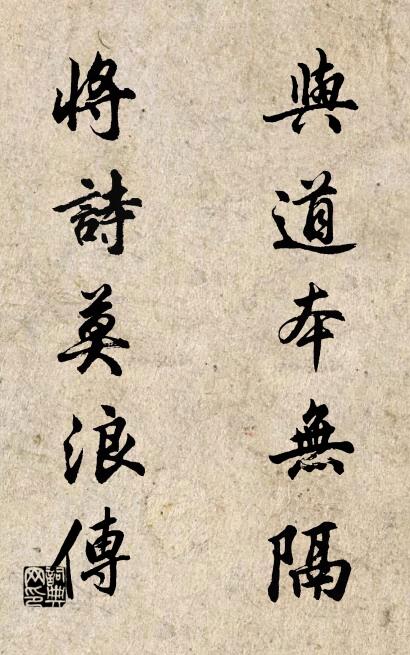 與道本無隔
將詩莫浪傳
詞典网印